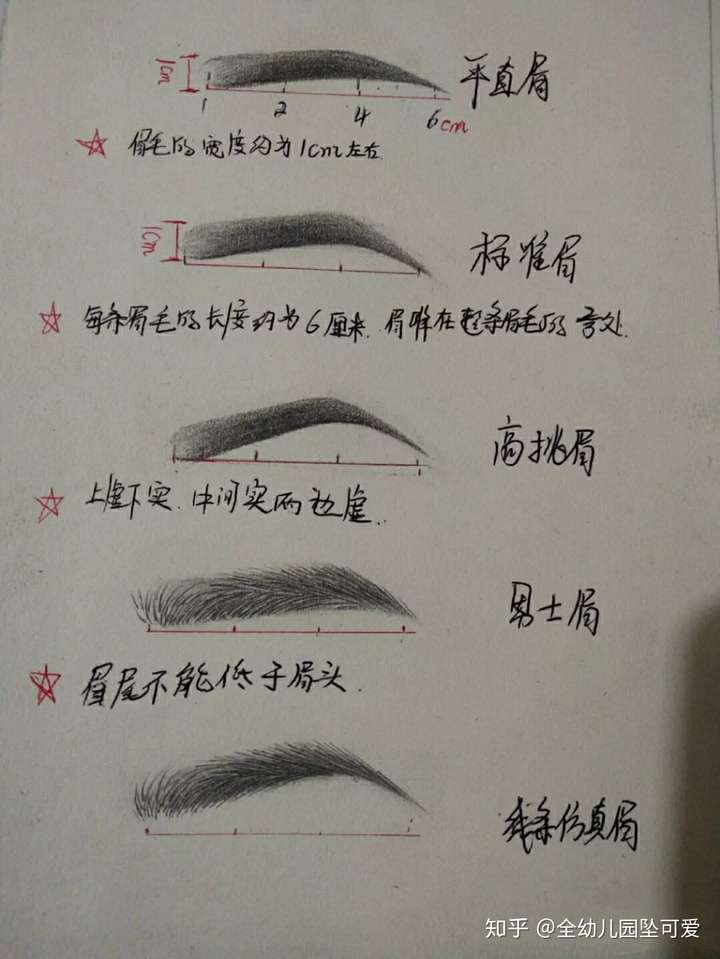 1cm
平直眉
1 2 4 6cm
☆ 眉毛的宽度约为1cm左右
1cm
标准眉
☆ 每条眉毛的长度约为6厘米. 眉峰在整条眉毛的 处
高挑眉
☆ 上虚下实. 中间实两边虚.
男士眉
☆ 眉尾不能低于眉头.
线条仿真眉
知乎 @全幼儿园坠可爱